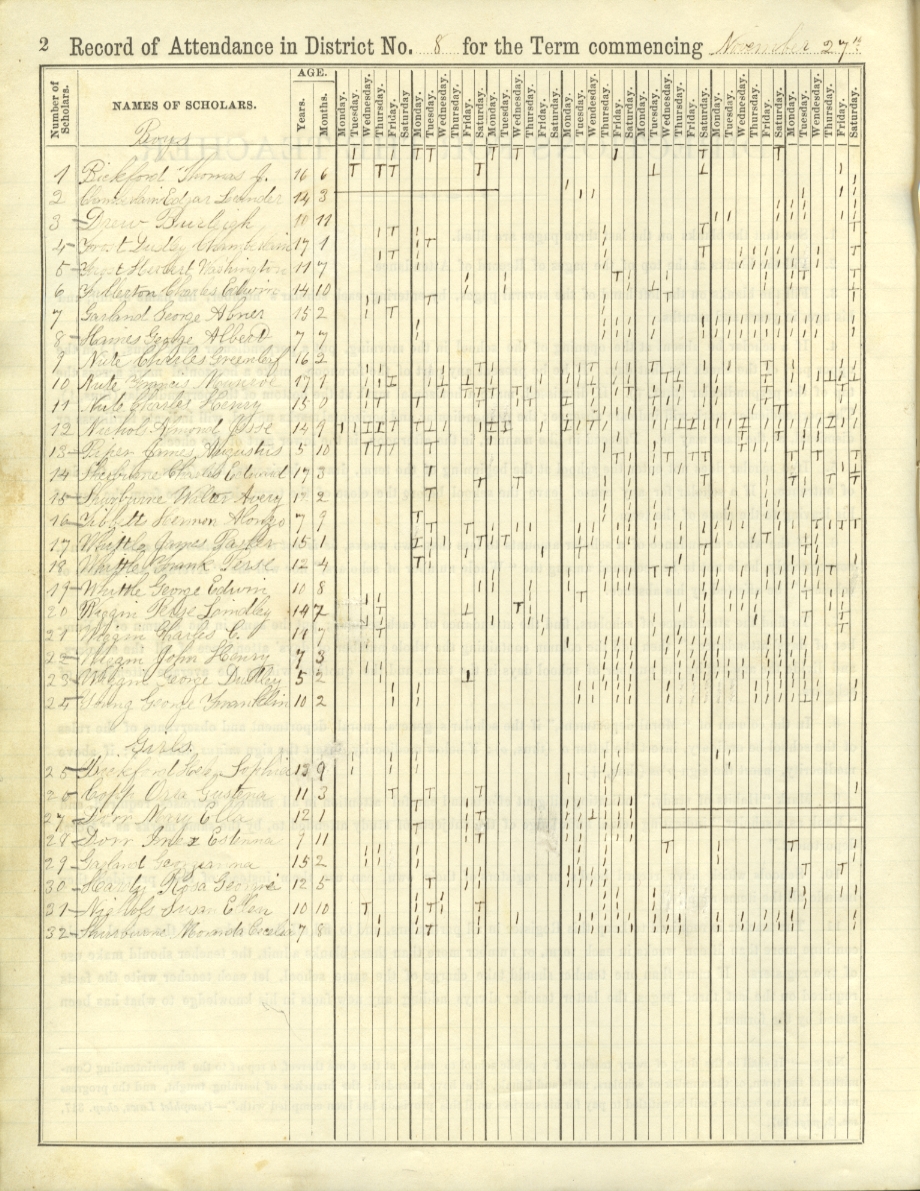 2 Record of Attendance in District No. 8 for the Term commencing November 27th
Number of Scholars. NAMES OF SCHOLARS. AGE. Years. Months. Monday. Tuesday. Wednesday. Thursday. Friday. Saturday Monday. Tuesday. Wednesday. Thursday. Friday. Saturday. Monday. Tuesday. Wednesday. Thursday. Friday. Saturday. Monday. Tuesday. Wednesday. Thursday. Friday. Saturday. Monday. Tuesday. Wednesday. Thursday. Friday. Saturday. Monday. Tuesday. Wednesday. Thursday. Friday. Saturday. Monday. Tuesday. Wednesday. Thursday. Friday. Saturday.
Boys
1 Bickford Thomas J. 16 6
2 Chamberlain Edgar Leander 14 3
3 Drew Burleigh 10 11
4 Frost Dudley Chamberlain 17 1
5 Frost Herbert Washington 11 7
6 Fullerton Charles Edwin 14 10
7 Garland George Abner 15 2
8 Haines George Albert 7 7
9 Nute Charles Greenleaf 16 2
10 Nute Francis Munroe 17 1
11 Nute Charles Henry 15 0
12 Nichols Almond Jesse 14 9
13 Piper James Augustus 5 10
14 Sherburne Charles Edward 17 3
15 Shurburne Walter Avery 12 2
16 Tibbetts Hermon Alonzo 7 9
17 Whittle James Tasker 15 1
18 Whittle Frank Perse 12 4
19 Whittle George Edwin 10 8
20 Wiggin Lindley 14 7
21 Wiggin Charles C. 11 7
22 Wiggin John Henry 7 3
23 Wiggin George Dudley 5 2
24 Young George Franklin 10 2
Girls.
25 Bickford Sophia 13 9
26 Copp Ora Gustena 11 3
27 Dorr Mary Ella 12 1
28 Dorr Inez Estenna 9 11
29 Garland Georgianna 15 2
30 Hardy Rosa Georgie 12 5
31 Nichols Susan Ellen 10 10
32 Shurbourne 7 8